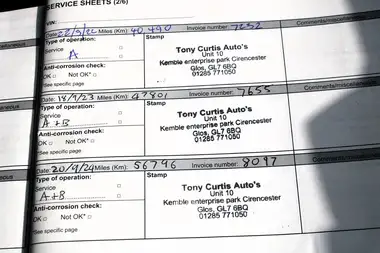 SERVICE SHEETS (2/6)
VIN:
Date: 22/9/22 Miles (Km): 40,490 Invoice number: 7232
Type of operation: Stamp
Service
A
Tony Curtis Auto's
Unit 10
Kemble enterprise park Cirencester
Glos, GL7 6BQ
01285 771050
Anti-corrosion check:
OK Not OK*
*See specific page
Date: 18/9/23 Miles (Km): 47801 Invoice number: 7655 Comments/miscellaneous
Type of operation: Stamp
Service
A+B
Tony Curtis Auto's
Unit 10
Kemble enterprise park Cirencester
Glos, GL7 6BQ
01285 771050
Anti-corrosion check:
OK Not OK*
*See specific page
Date: 20/9/24 Miles (Km): 56796 Invoice number: 8097 Comments/miscellaneous
Type of operation: Stamp
Service
A+B
Tony Curtis Auto's
Unit 10
Kemble enterprise park Cirencester
Glos, GL7 6BQ
01285 771050
Anti-corrosion check:
OK Not OK*
*See specific page